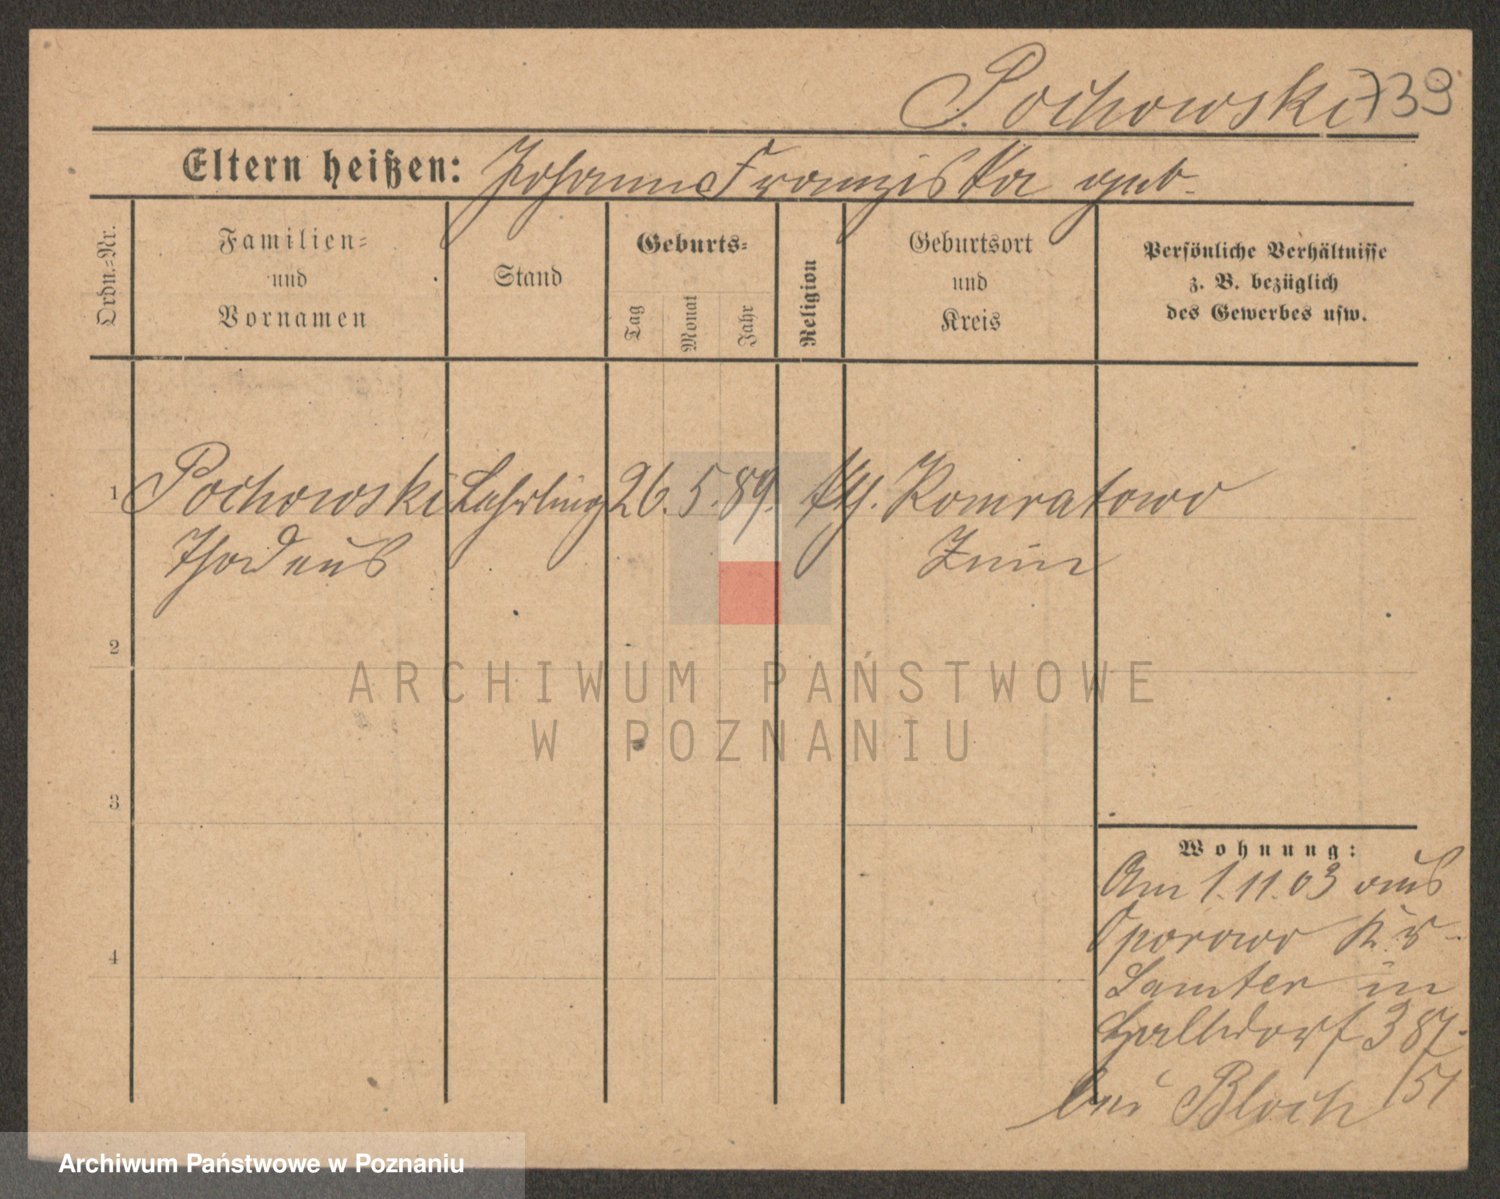 Pochowski 739
Eltern heißen: Johann Franziska geb.
Ordn.-Nr.
Familien-
und
Vornamen
Stand
Geburts-
Tag
Monat
Jahr
Religion
Geburtsort
und
Kreis
Persönliche Verhältnisse
z. B. bezüglich
des Gewerbes usw.
1 Pochowski Lehrling 26. 5. 89. kth. Komratowo
Thadeus Znin
2
ARCHIWUM PAŃSTWOWE
W POZNANIU
3
Wohnung:
Am 1.11.03 aus
Oporowo Kr.
4
Samter in
387.
bei Bloch /51
Archiwum Państwowe w Poznaniu